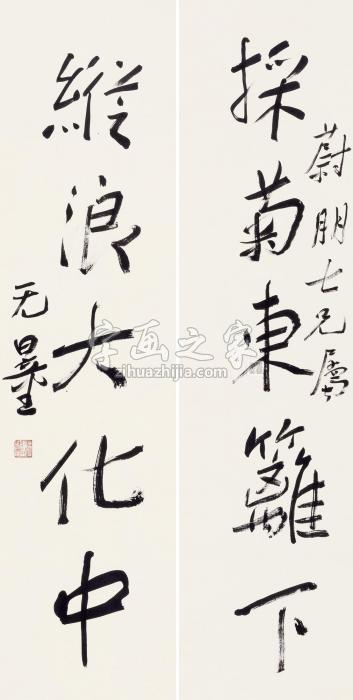 蔚朋七兄属
採菊東籬下
縱浪大化中
无量
字画之家
zihuazhijia.com